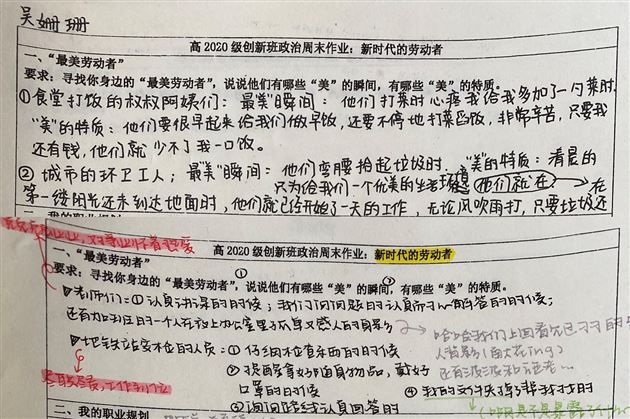 吴姗珊
高2020级创新班政治周末作业：新时代的劳动者
一、“最美劳动者”
要求：寻找你身边的“最美劳动者”，说说他们有哪些“美”的瞬间，有哪些“美”的特质。
①食堂打饭的叔叔阿姨们：最“美”瞬间：他们打菜时心疼我给我多加了一勺菜时.
“美”的特质：他们要很早起来给我们做早饭，还要不停地打菜舀饭，非常辛苦，只要我
还有钱，他们就少不了我一口饭。
②城市的环卫工人；最“美”瞬间：他们弯腰拾起垃圾时，“美”的特质：清晨的
只为给我们一个优美的生活环境 他们就在 在
第一缕阳光还未到达地面时，他们就已经开始了一天的工作，无论风吹雨打，只要垃圾还
二、我的职业规划
高2020级创新班政治周末作业：新时代的劳动者
一、“最美劳动者”
要求：寻找你身边的“最美劳动者”，说说他们有哪些“美”的瞬间，有哪些“美”的特质。
老师们：①认真讲课的时候；我们问问题时认真而耐心解答的时候；
还有加班的一个人在晚上办公室里
地铁站安检的人员：①仔细检查东西的时候
②提醒拿好随身物品，戴好
口罩的时候
③询问路线认真回答时
④我的文件夹掉了帮我找时
二、我的职业规划